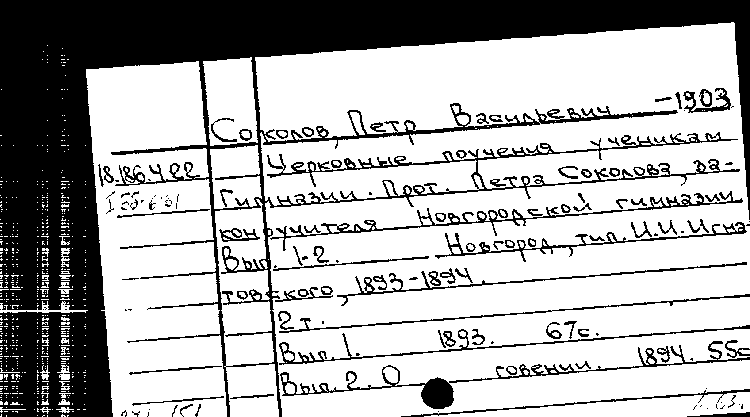 Соколов, Петр Васильевич —1903
18.186.4.22 Церковные поучения ученикам
Гимназии. Прот. Петра Соколова, за-
коноучителя Новгородской гимназии
Вып. 1-2. Новгород, тип. И.И. Игна-
товского, 1893-1894.
2 т.
Вып. 1. 1893. 67с.
Вып. 2. О говении. 1894. 55с